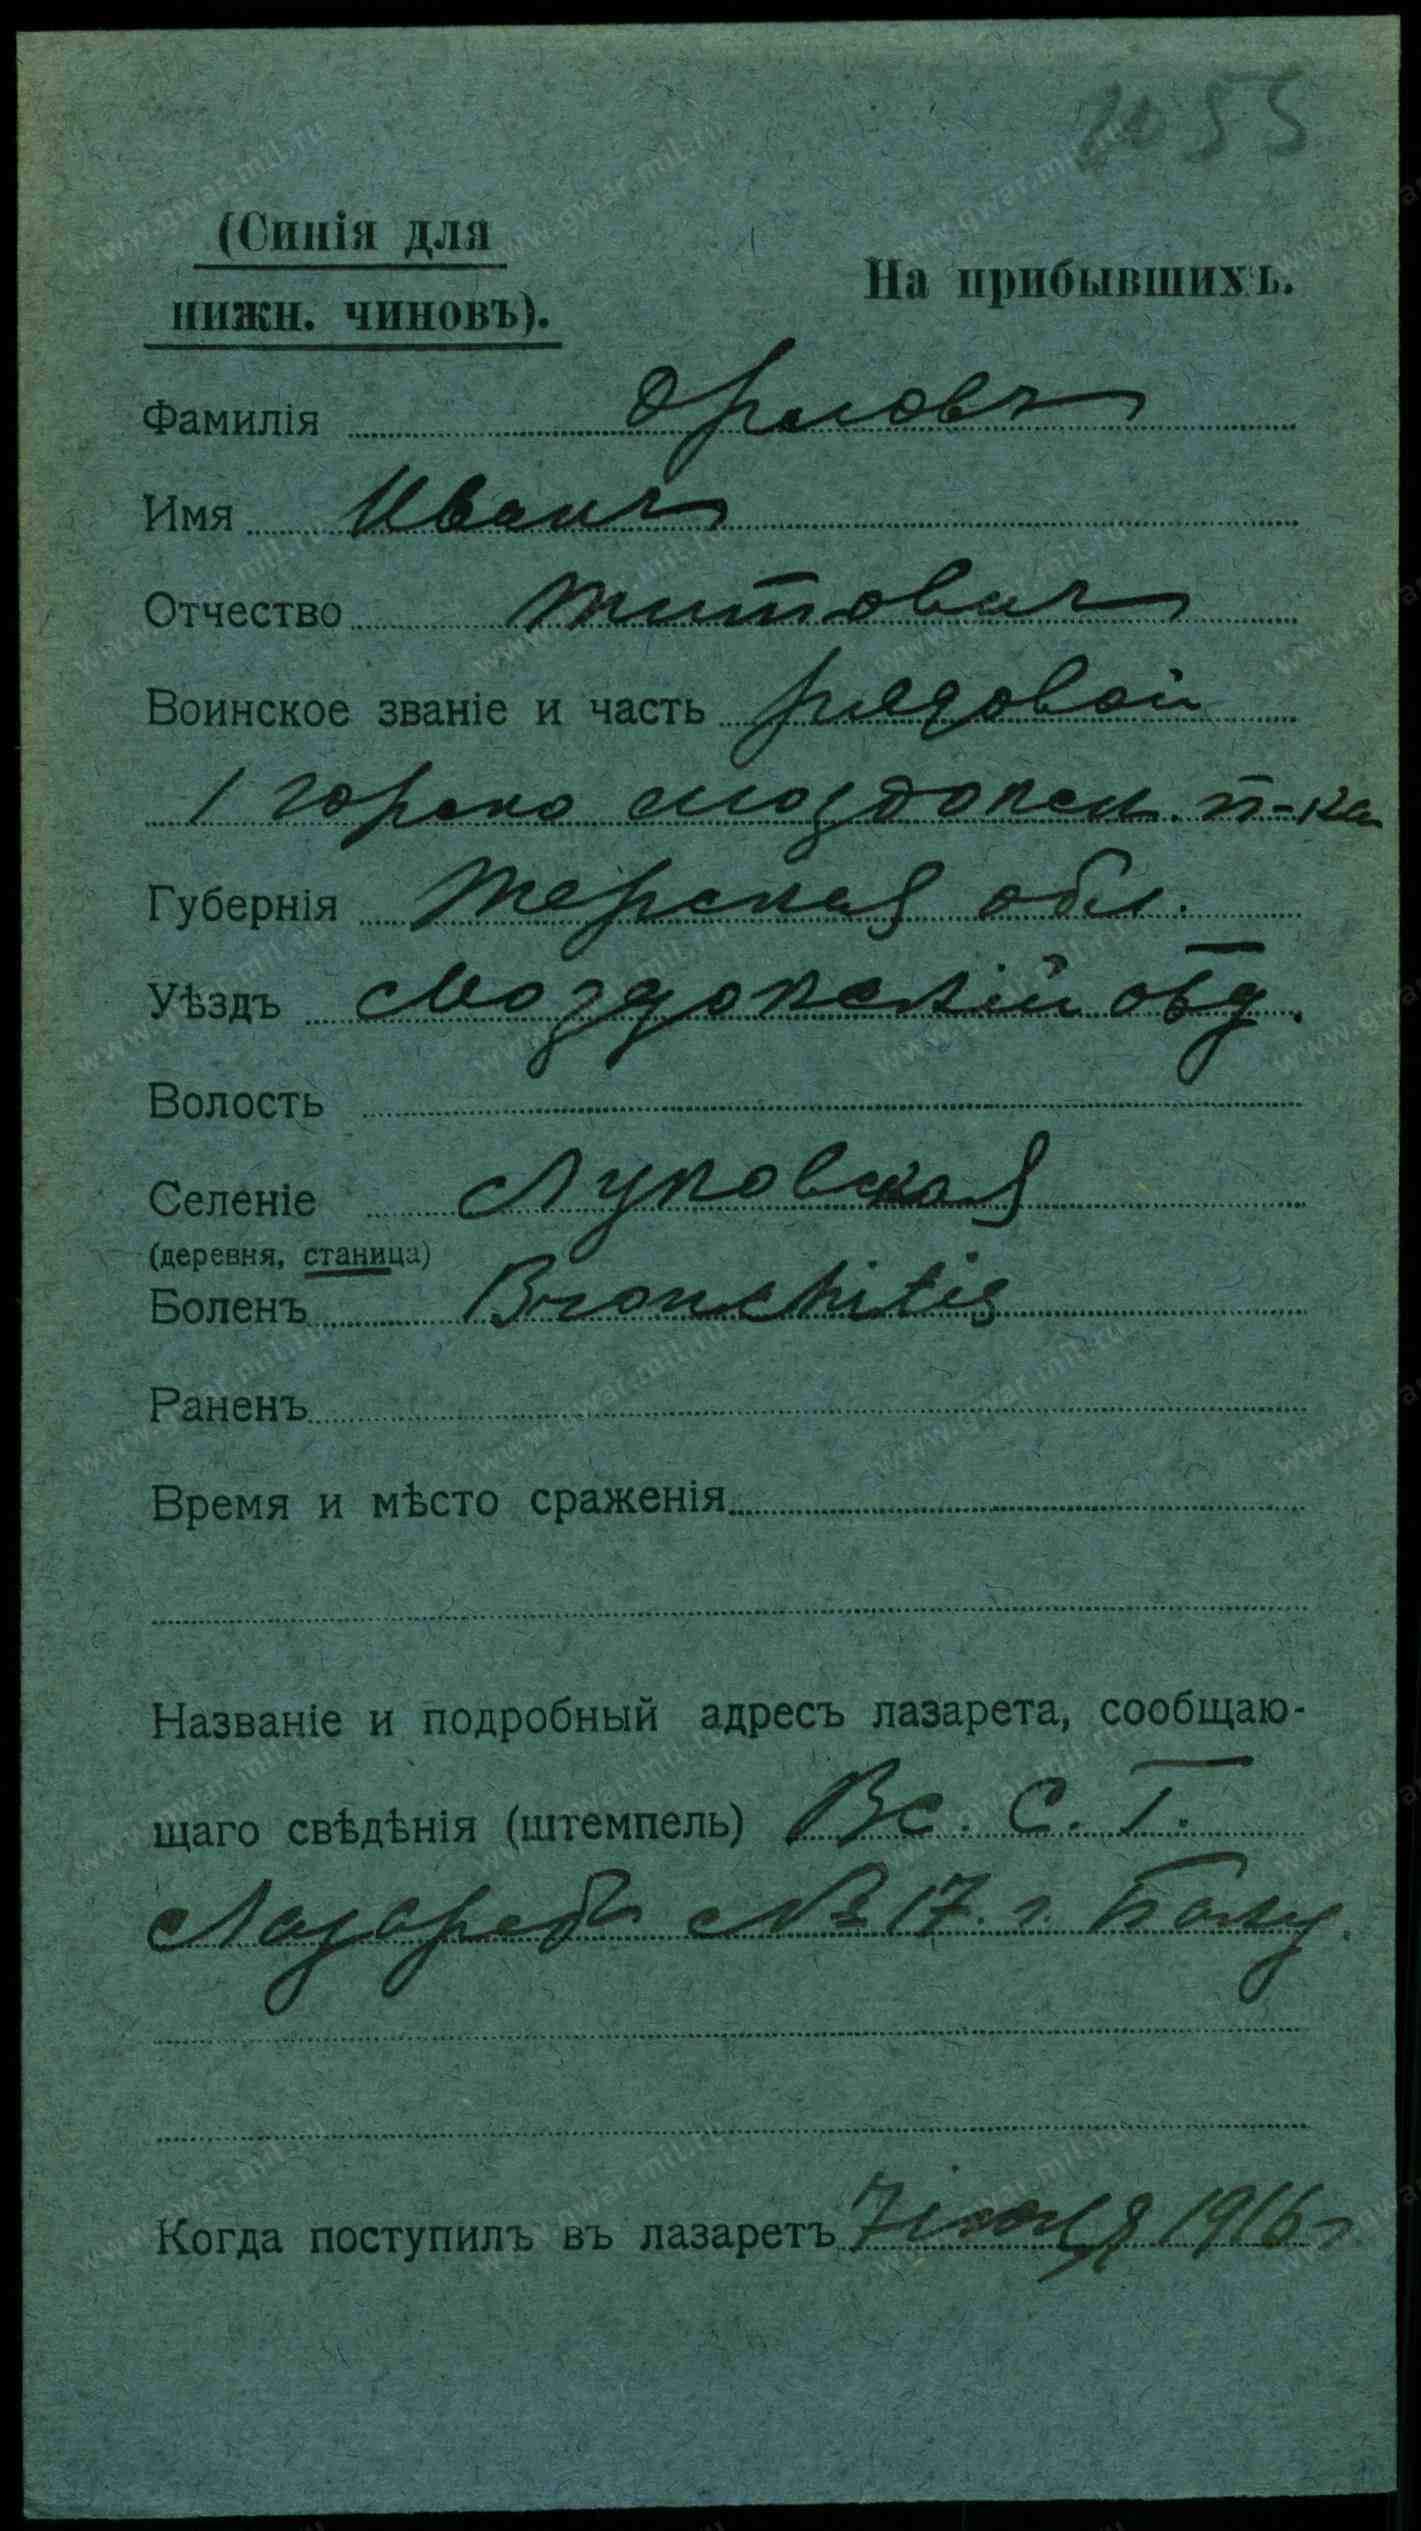 2055
(Синія для
нижн. чиновъ).
На прибывшихъ.
Фамилія Орловъ
Имя Иванъ
Отчество Титовичъ
Воинское званіе и часть рядовой
1 Горско Моздокск. п-ка
Губернія Терская обл.
Уѣздъ Моздокскій отд.
Волость
Селеніе Луковская
(деревня, станица)
Боленъ Bronchitis
Раненъ
Время и мѣсто сраженія
Названіе и подробный адресъ лазарета, сообщаю-
щаго свѣдѣнія (штемпель) Вс. С. Г.
Лазаретъ №17. г. Баку.
Когда поступилъ въ лазаретъ 7 іюня 1916 г
www.gwar.mil.ru